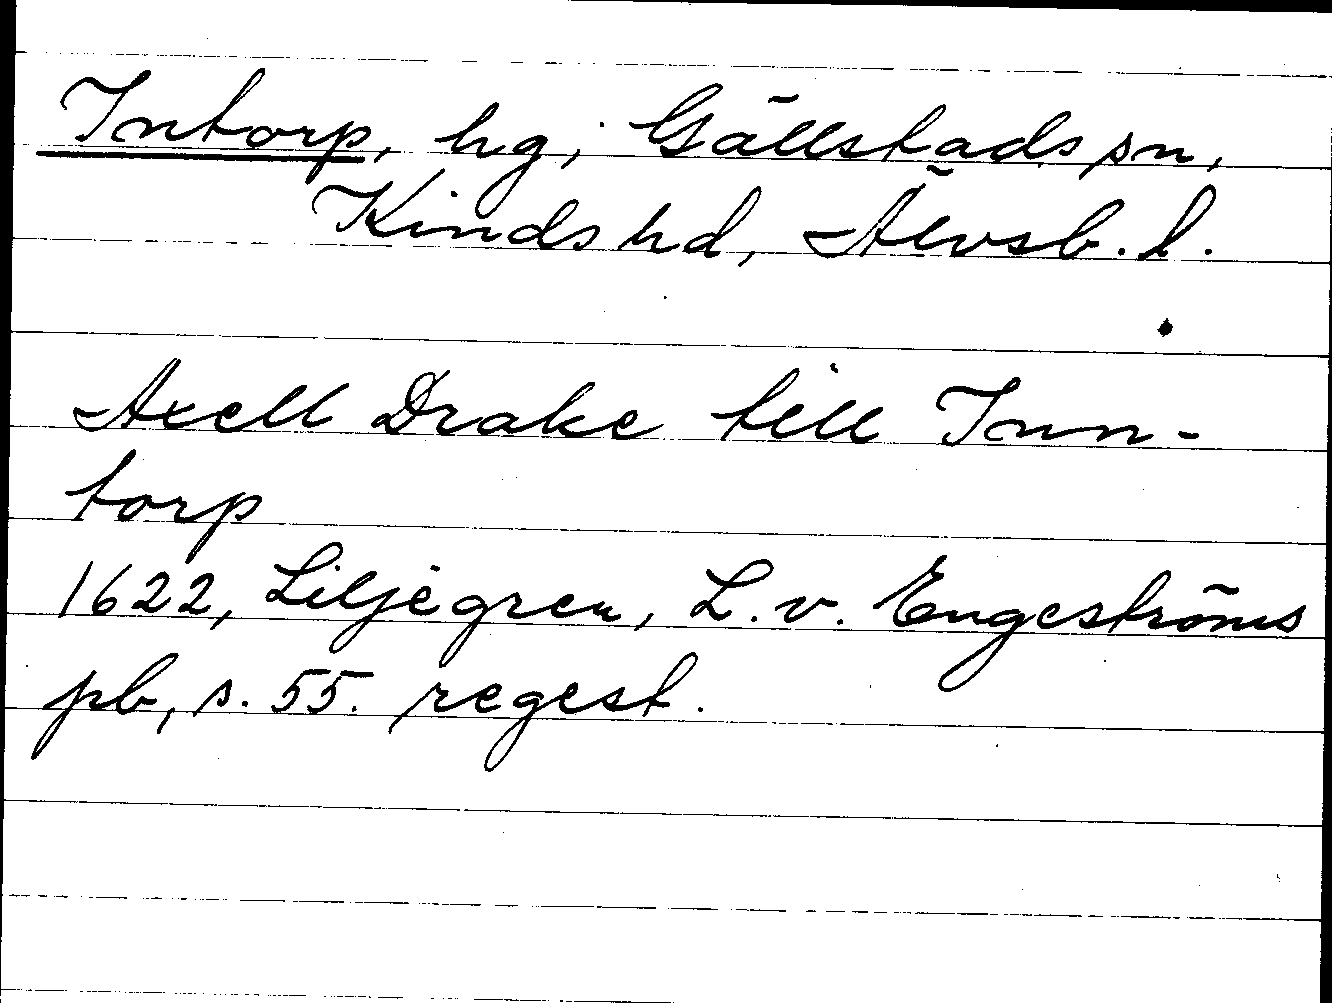 Intorp, hg, Gällstads sn,
Kinds hd, Älvsb. l.
Axell Drake till Inn-
torp
1622, Liljegren, L. v. Engeströms
pb, s. 55. regest.